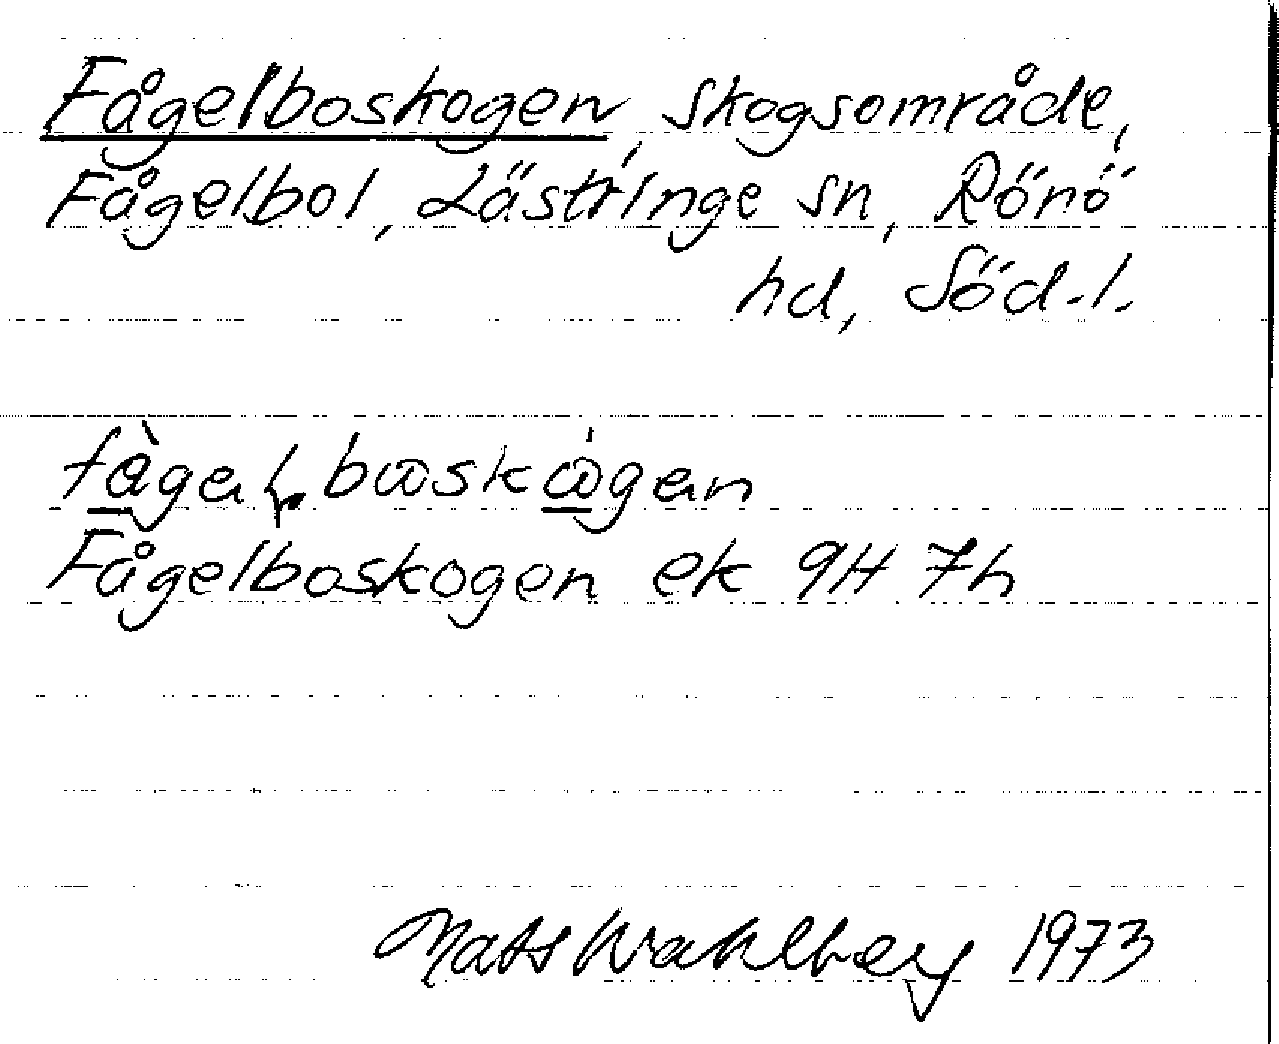 Fågelboskogen, skogsområde,
Fågelbol, Lästringe sn, Rönö
hd, Söd-l.
Fågelboskogen ek 9H 7h
Mats Wahlberg 1973